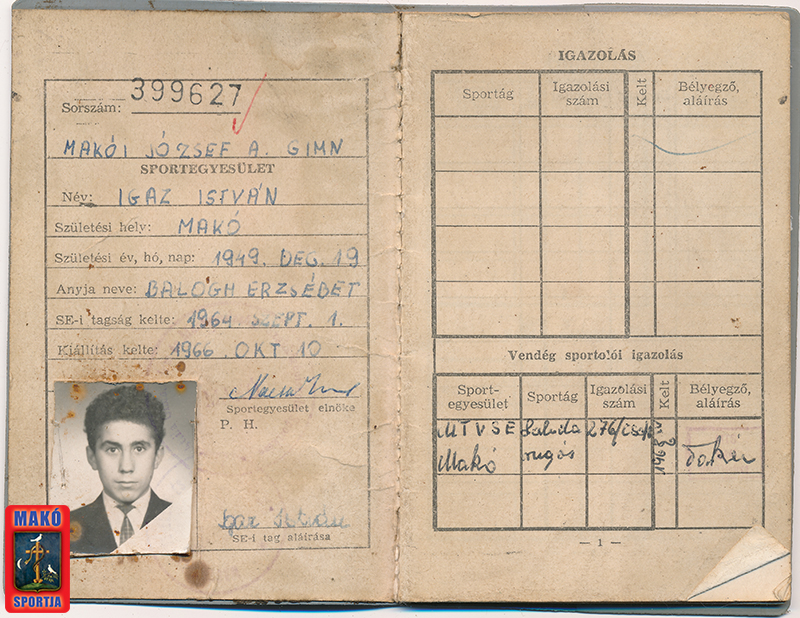 Sorszám: 399627
MAKÓI JÓZSEF A. GIMN
SPORTEGYESÜLET
Név: IGAZ ISTVÁN
Születési hely: MAKÓ
Születési év, hó, nap: 1949. DEC. 19
Anyja neve: BALOGH ERZSÉBET
SE-i tagság kelte: 1964 SZEPT. 1.
Kiállítás kelte: 1966 OKT 10
Sportegyesület elnöke
P. H.
Igaz István
SE-i tag aláírása
MAKÓ
SPORTJA
IGAZOLÁS
Sportág
Igazolási szám
Kelt
Bélyegző, aláírás
Vendég sportolói igazolás
Sport-egyesület
Sportág
Igazolási szám
Kelt
Bélyegző, aláírás
MTVSE Labda 276/
Makó rugós
— 1 —